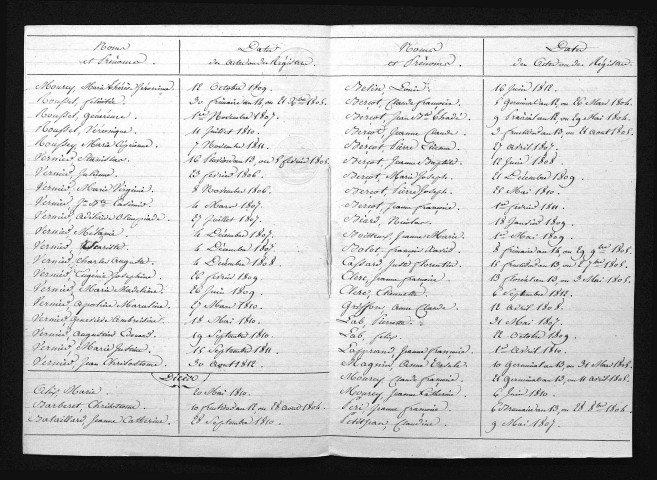 Noms et Prénoms.
Dates des Actes ou du Registre
Mourey, Marie Thérèse Séraphine. 12 Octobre 1809.
Rousset, félicité. 30 frimaire an 14, ou 21 Xbre 1805.
Rousset, généreuse. 1er Novembre 1807.
Rousset, Véronique. 11 Juillet 1810.
Roussey, Marie Cyrienne. 7 Novembre 1811.
Vernier, Stanislas. 16 Pluviose an 13, ou 5 février 1805.
Vernier, Justine. 23 février 1806.
Vernier, Marie Virginie. 8 Novembre 1806.
Vernier, Casimir. 4 Mars 1807.
Vernier, 27 Juillet 1807.
Vernier, Mélanie. 4 Décembre 1807.
Vernier, Henriette. 4 Décembre 1807
Vernier, Charles Auguste. 4 Décembre 1808
Vernier, Eugénie Joséphine. 22 février 1809.
Vernier, Marie Madeleine. 24 Juin 1809.
Vernier, Apolline Marceline. 27 Mars 1810.
Vernier, 18 Mai 1810.
Vernier, Augustin Edouard. 19 Septembre 1810.
Vernier, Marie Justine. 15 Septembre 1811.
Vernier, Jean Chrisostome. 30 Aout 1812.
Décès
Alix, Marie. 20 Mai 1810.
Barberet, Chrisostome. 10 fructidor an 12, ou 28 Aout 1804.
Bataillard, Jeanne Catherine. 28 Septembre 1810.
Noms et Prénoms.
Dates des Actes ou du Registre.
Belin, Louis. 16 Juin 1812.
Bercot, Claude françois. 5 Germinal an 12, ou 26 Mars 1804.
Bercot, Jean Bte 9 Prairial an 12, ou 29 Mai 1804.
Bercot, Jeanne Claude. 3 fructidor an 13, ou 21 Aout 1805.
Bercot, Pierre Etienne. 27 Avril 1807.
Bercot, Jeanne Baptiste. 12 Juin 1808.
Bercot, Marie Joseph. 21 Décembre 1809.
Bercot, Pierre Joseph. 28 Mai 1810.
Bercot, Jeanne françoise. 1er février 1811.
Biard, Nicolas. 18 Janvier 1809.
Boitteux, Jeanne Marie. 1er Mai 1809.
françois 8 frimaire an 14, ou 29 9bre 1805.
Castard, Juste florentin. 15 fructidor an 13, ou 2 7bre 1805.
Clerc, Jeanne françoise. 13 floréal an 13, ou 3 Mai 1805.
Clerc, Etiennette. 6 Septembre 1812.
Griffon, Anne Claude. 12 Avril 1808.
Lab, Pierrette. 31 Mai 1807.
Lab, félix. 22 Octobre 1809.
Jeanne françoise. 1er Avril 1810.
Magnin, Anne 10 germinal an 13, ou 31 Mars 1805.
Mourey, Claude françois. 21 Germinal an 13, ou 11 Avril 1805.
Mourey, Jeanne Catherine. 6 Juin 1810.
Jeanne françoise. 6 Brumaire an 13, ou 28 8bre 1804.
Petitjean, Claudine. 9 Mai 1807.